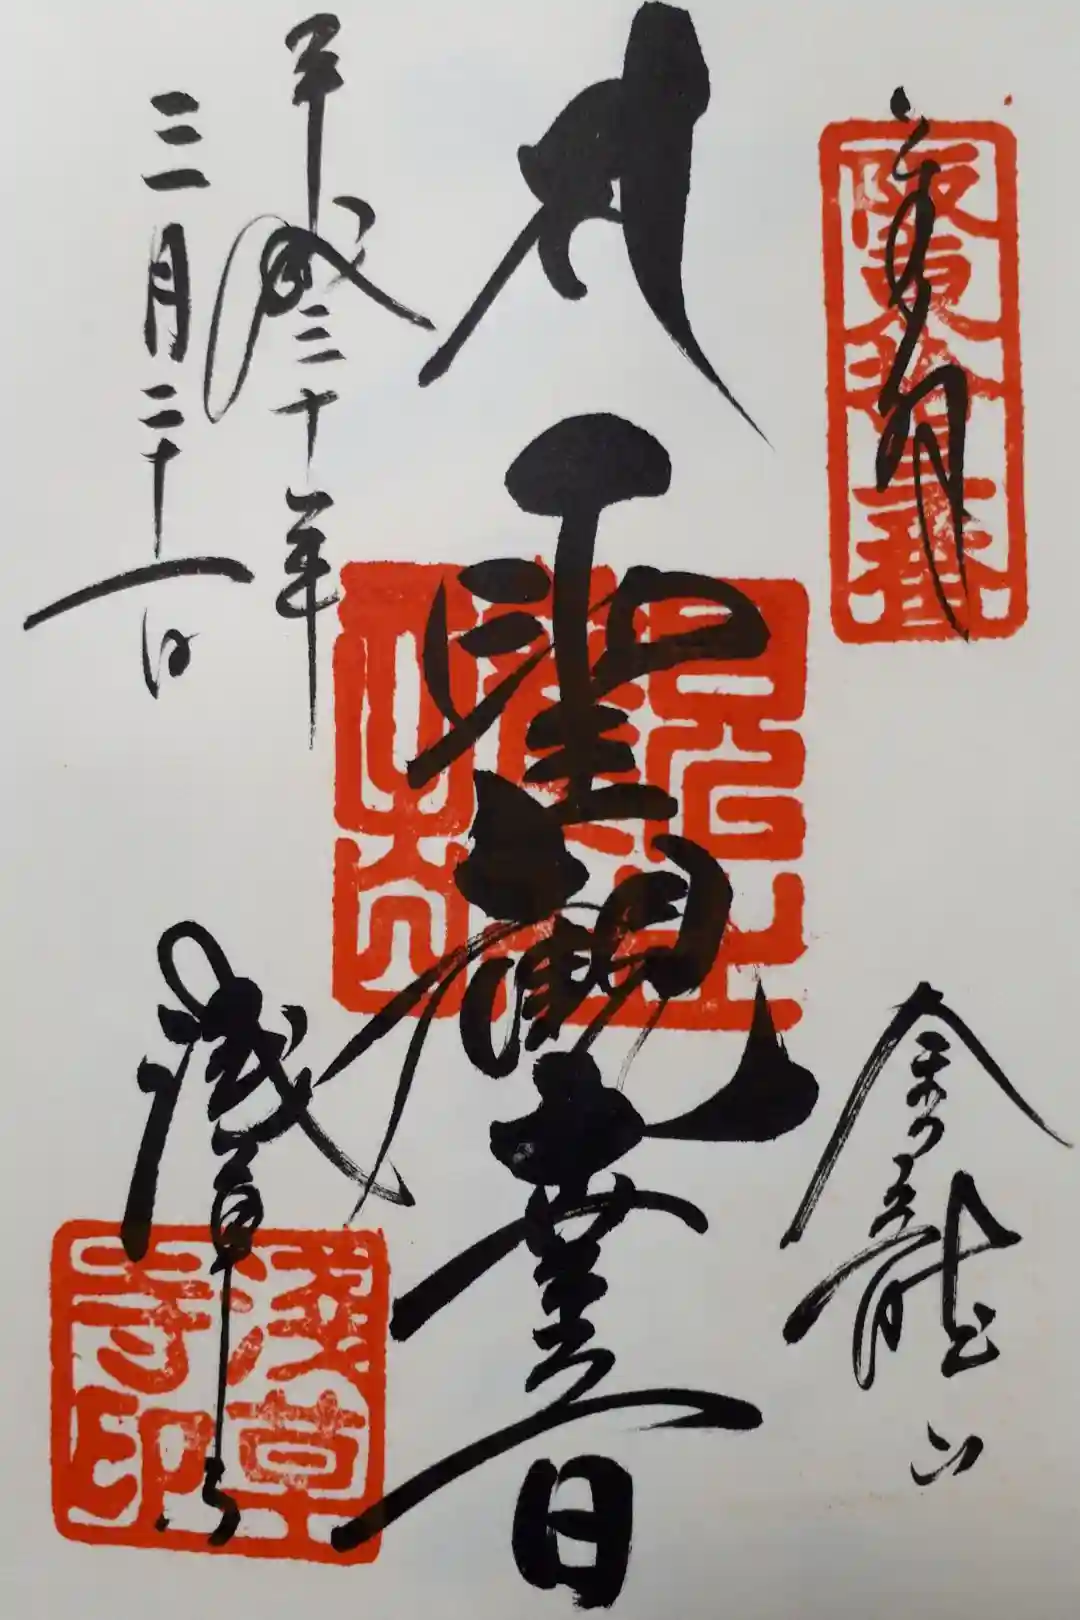 奉拝
阪東拾三番
金龍山
聖観世音
平成三十年
三月二十一日
浅草寺
浅草寺印